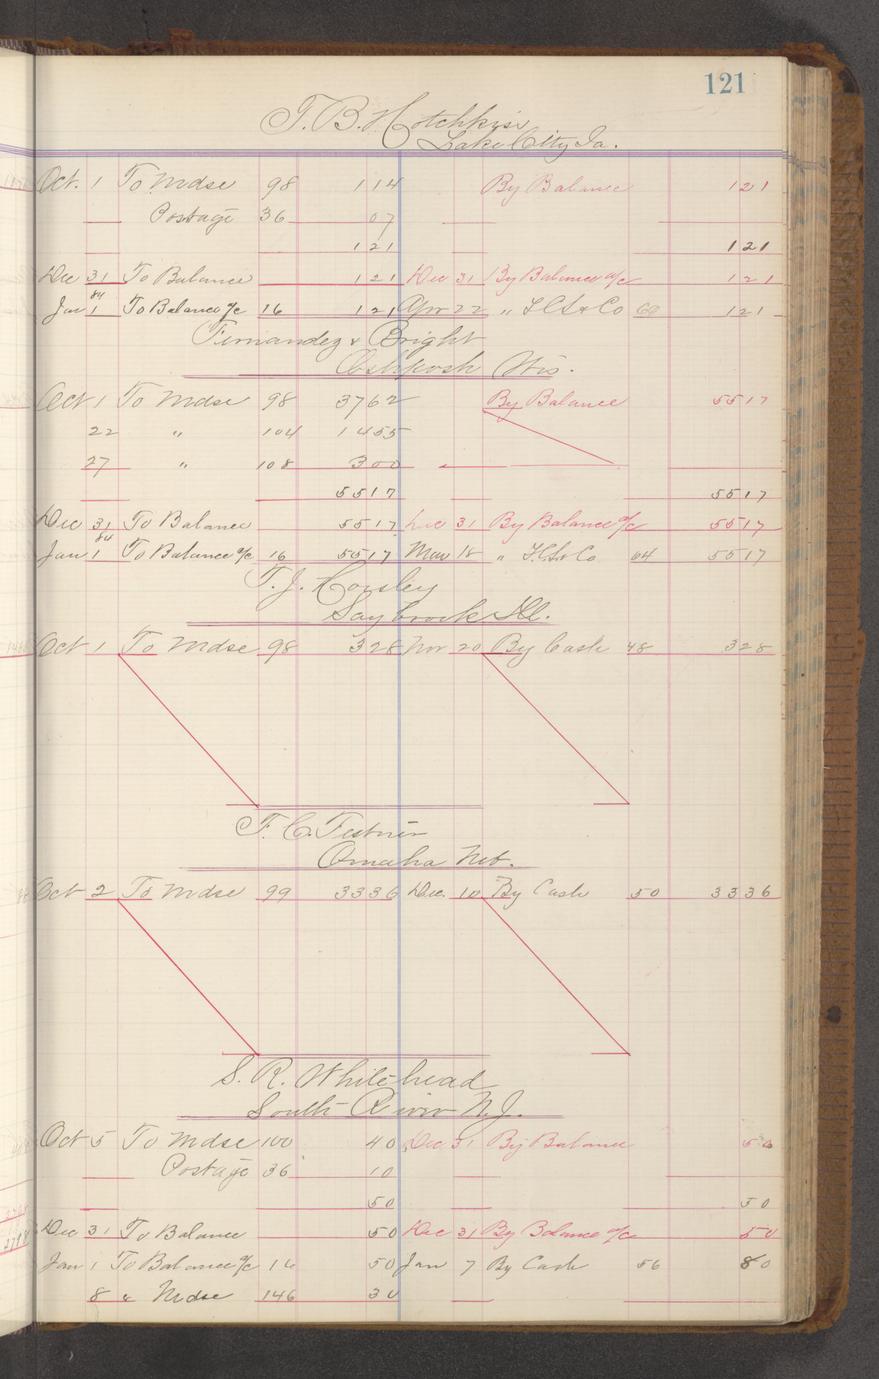 121
T. B. Hotchkiss
Lake City Ia.
Oct. 1 To Mdse 98 1 14 By Balance 1 21
Postage 36 07
1 21 1 21
Dec 31 To Balance 1 21 Dec 31 By Balance a/c 1 21
84
Jan 1 To Balance a/c 16 1 21 Apr 22 " & Co 60 1 21
Fernandez & Bright
Oshkosh Wis.
Oct 1 To Mdse 98 37 62 By Balance 55 17
22 " 104 14 55
27 " 108 3 00
55 17 55 17
Dec 31 To Balance 55 17 Dec 31 By Balance a/c 55 17
84
Jan 1 To Balance a/c 16 55 17 Mar 18 " & Co 64 55 17
T. J. Horsley
Saybrook Ill.
Oct 1 To Mdse 98 3 28 Nov 20 By Cash 48 3 28
F. C. Festner
Omaha Neb.
Oct 2 To Mdse 99 33 36 Dec. 10 By Cash 50 33 36
S. R. Whitehead
South River N.J.
Oct 5 To Mdse 100 40 Dec 31 By Balance 50
Postage 36 10
50 50
Dec 31 To Balance 50 Dec 31 By Balance a/c 50
Jan 1 To Balance a/c 16 50 Jan 7 By Cash 56 80
8 " Mdse 146 30